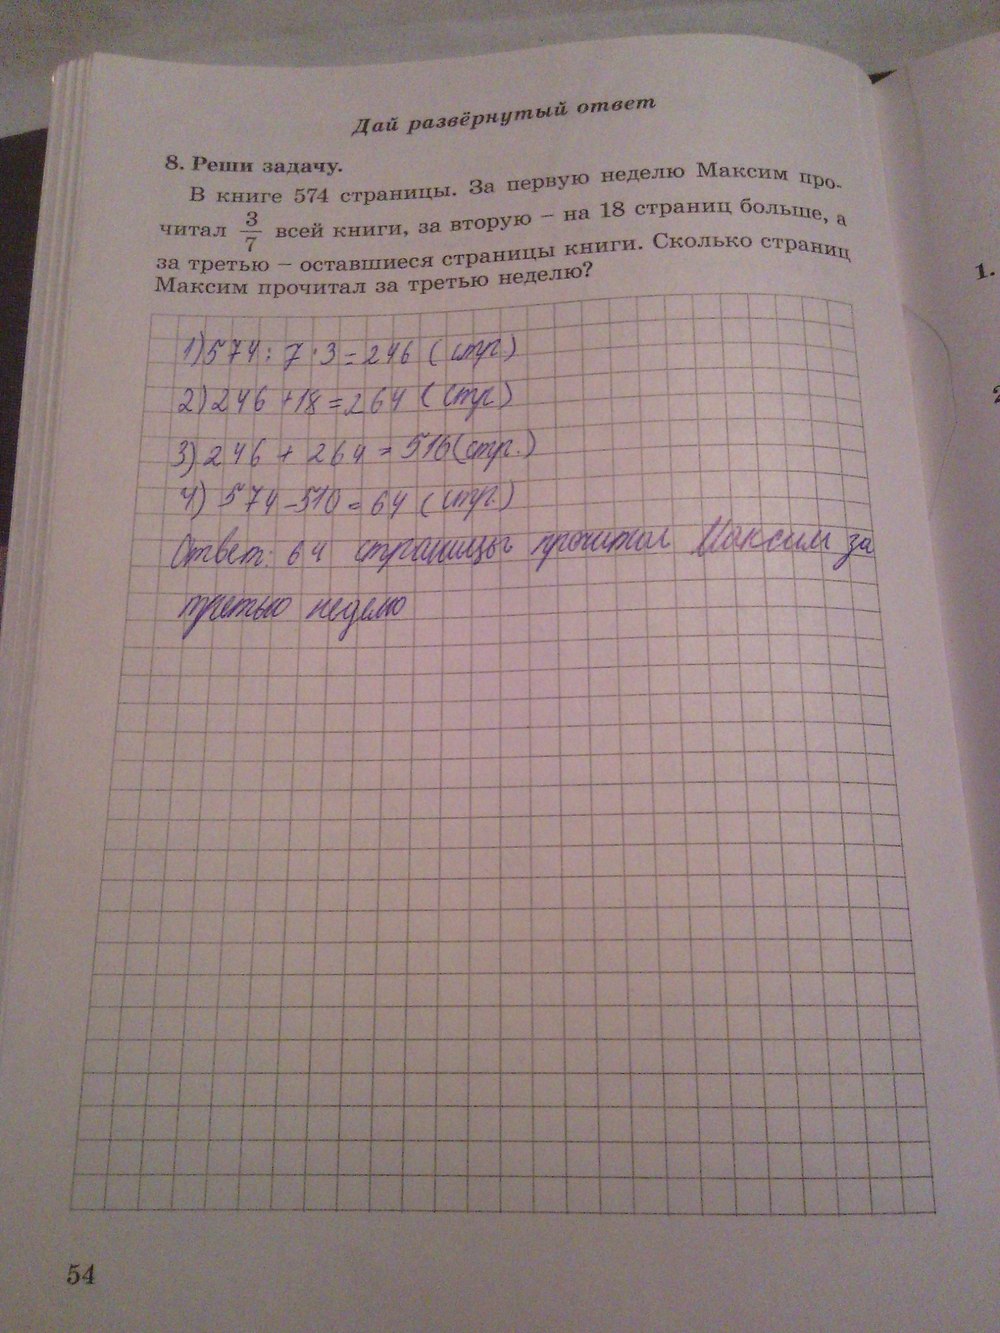 Дай развёрнутый ответ
8. Реши задачу.
В книге 574 страницы. За первую неделю Максим про-
читал 3/7 всей книги, за вторую – на 18 страниц больше, а
за третью – оставшиеся страницы книги. Сколько страниц
Максим прочитал за третью неделю?
1) 574 : 7 · 3 = 246 (стр.)
2) 246 + 18 = 264 (стр)
3) 246 + 264 = 510 (стр.)
4) 574 – 510 = 64 (стр.)
Ответ: 64 страницы прочитал Максим за
третью неделю
54
1.
2